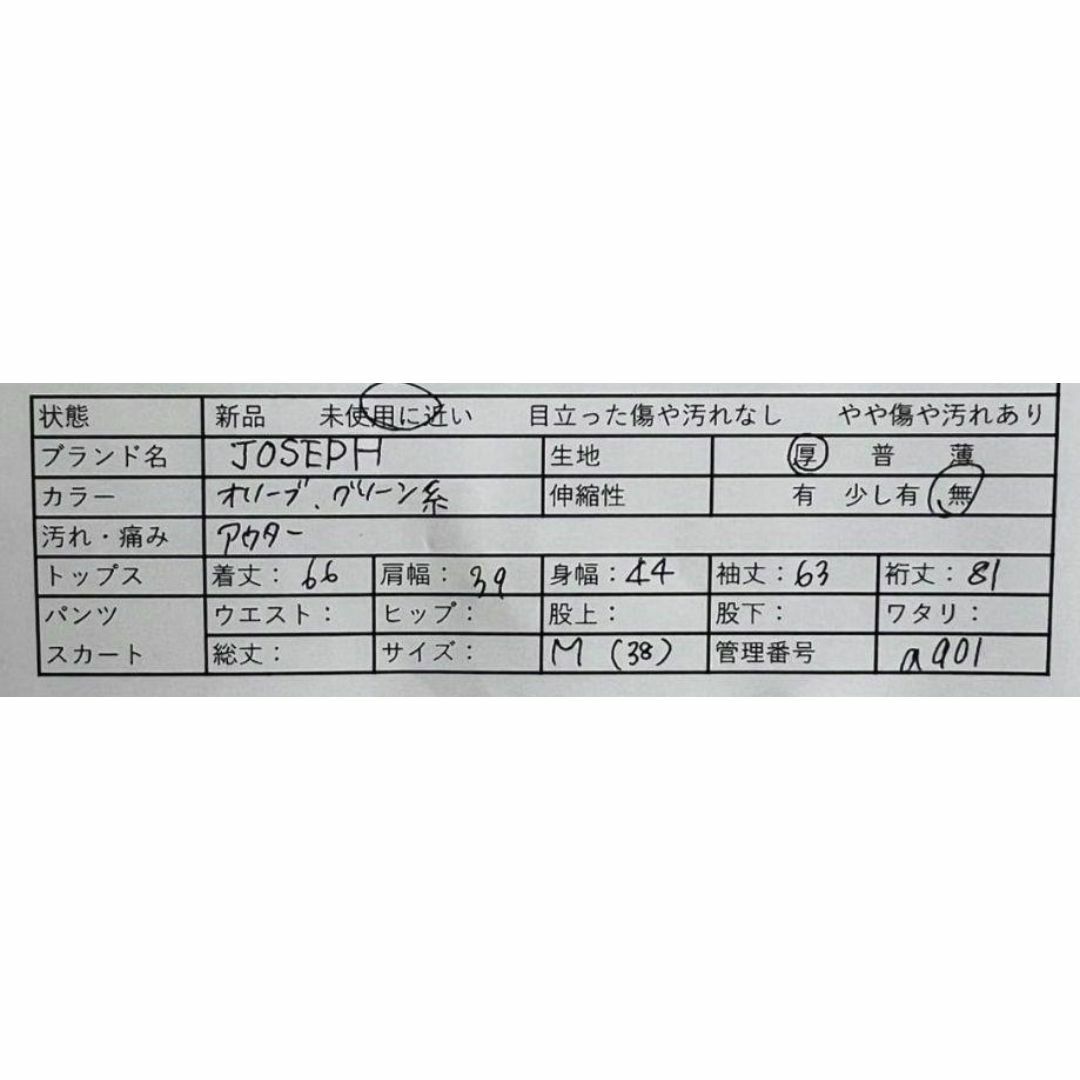 状態 新品 未使用に近い 目立った傷や汚れなし やや傷や汚れあり
ブランド名 JOSEPH 生地 厚 普 薄
カラー オリーブ、グリーン系 伸縮性 有 少し有 無
汚れ・痛み アウター
トップス 着丈：66 肩幅：39 身幅：44 袖丈：63 裄丈：81
パンツ ウエスト： ヒップ： 股上： 股下： ワタリ：
スカート 総丈： サイズ： M (38) 管理番号 a901